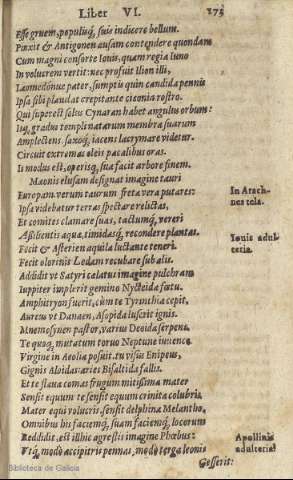 Liber VI. 273
Esse gruem, populisq́; suis indicere bellum.
Pinxit & Antigonen ausam contendere quondam
Cum magni consorte Iouis, quam regia Iuno
In volucrem vertit: nec profuit Ilion illi,
Laomedonue pater, sumptis quin candida pennis
Ipsa sibi plaudat crepitante ciconia rostro.
Qui superest solus Cynaran habet angulus orbum:
Isq́; gradus templi natarum membra suarum
Amplectens, saxoq́; iacens lacrymare videtur.
Circuit extremas oleis pacalibus oras.
Is modus est, operisq́; sua facit arbore finem.
Mæonis elusam designat imagine tauri
Europam: verum taurum, freta vera putares:
Ipsa videbatur terras spectare relictas,
In Arach-
nes tela.
Et comites clamare suas, tactumq́; vereri
Assilientis aquæ, timidasq́; recondere plantas.
Fecit & Asterien aquila luctante teneri.
Iouis adul-
teria.
Fecit olorinis Ledam recubare sub alis.
Addidit vt Satyri celatus imagine pulchram
Iuppiter implerit gemino Nycteida fœtu.
Amphitryon fuerit, cùm te Tirynthia cepit,
Aureus vt Danaen, Asopida luserit ignis.
Mnemosynen pastor, varius Deoida serpens.
Te quoq́; mutatum toruo Neptune iuuenco
Virgine in Aeolia posuit. tu visus Enipeus,
Gignis Aloidas: aries Bisaltida fallis.
Et te flaua comas frugum mitissima mater
Sensit equum: te sensit equum crinita colubris
Mater equi volucris. sensit delphina Melantho,
Omnibus his faciemq́; suam, faciemq́; locorum
Reddidit. est illîc agrestis imagine Phœbus:
Vtq́; modò accipitris pennas, modò terga leonis
Apollinis
adulteria.
Gesserit:
Biblioteca de Galicia